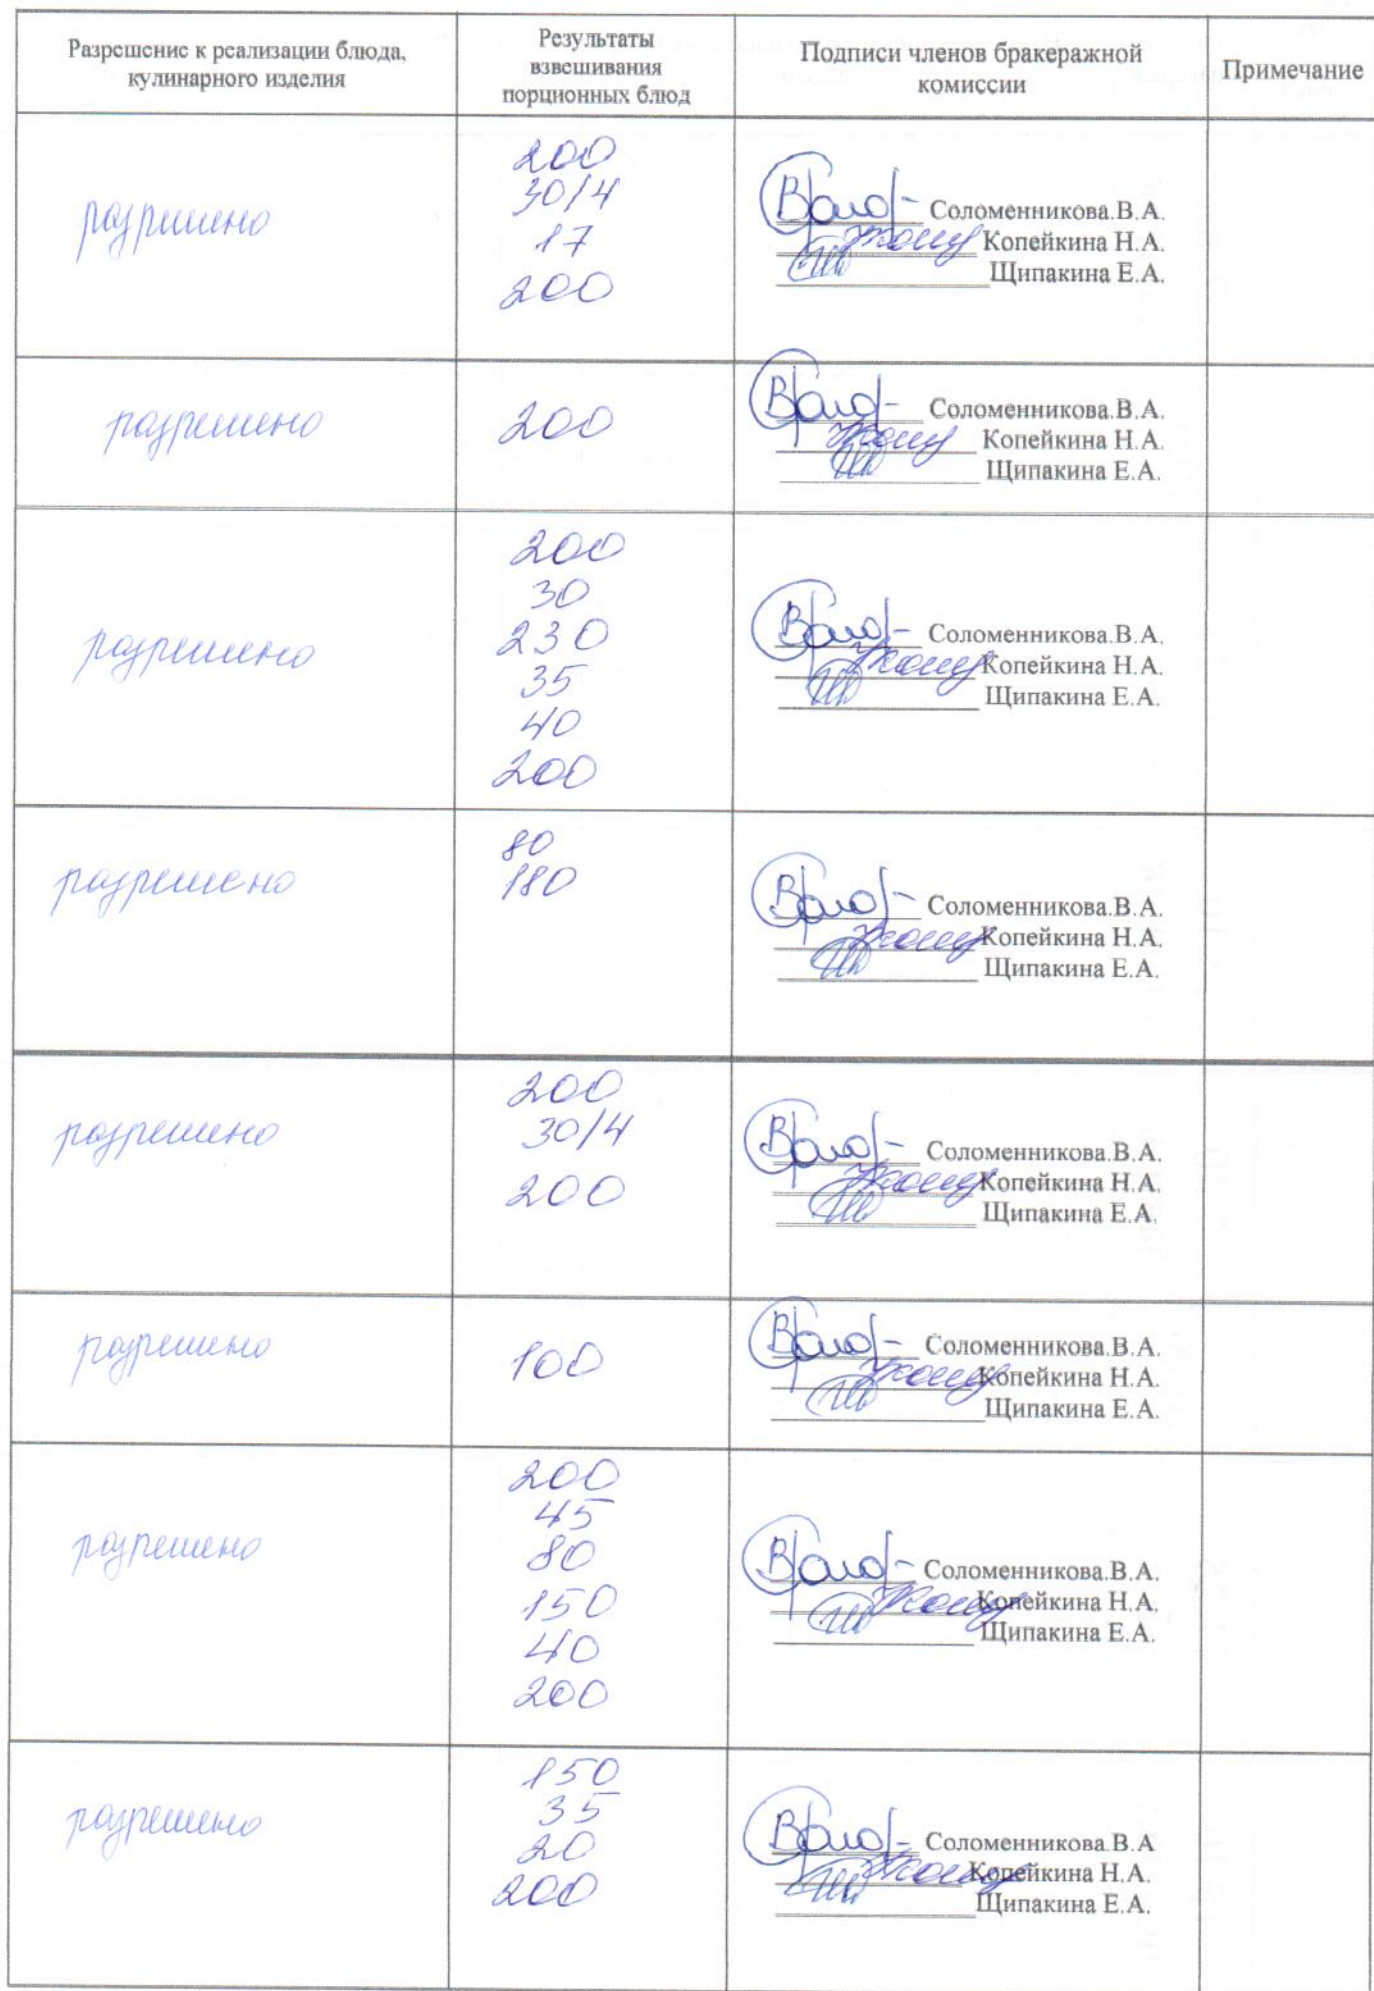 Разрешение к реализации блюда,
кулинарного изделия
Результаты
взвешивания
порционных блюд
Подписи членов бракеражной
комиссии
Примечание
разрешено
200
30/4
17
200
Соломенникова.В.А.
Копейкина Н.А.
Щипакина Е.А.
разрешено
200
Соломенникова.В.А.
Копейкина Н.А.
Щипакина Е.А.
разрешено
200
30
230
35
40
200
Соломенникова.В.А.
Копейкина Н.А.
Щипакина Е.А.
разрешено
80
180
Соломенникова.В.А.
Копейкина Н.А.
Щипакина Е.А.
разрешено
200
30/4
200
Соломенникова.В.А.
Копейкина Н.А.
Щипакина Е.А.
разрешено
100
Соломенникова.В.А.
Копейкина Н.А.
Щипакина Е.А.
разрешено
200
45
80
150
40
200
Соломенникова.В.А.
Копейкина Н.А.
Щипакина Е.А.
разрешено
150
35
20
200
Соломенникова.В.А
Копейкина Н.А.
Щипакина Е.А.